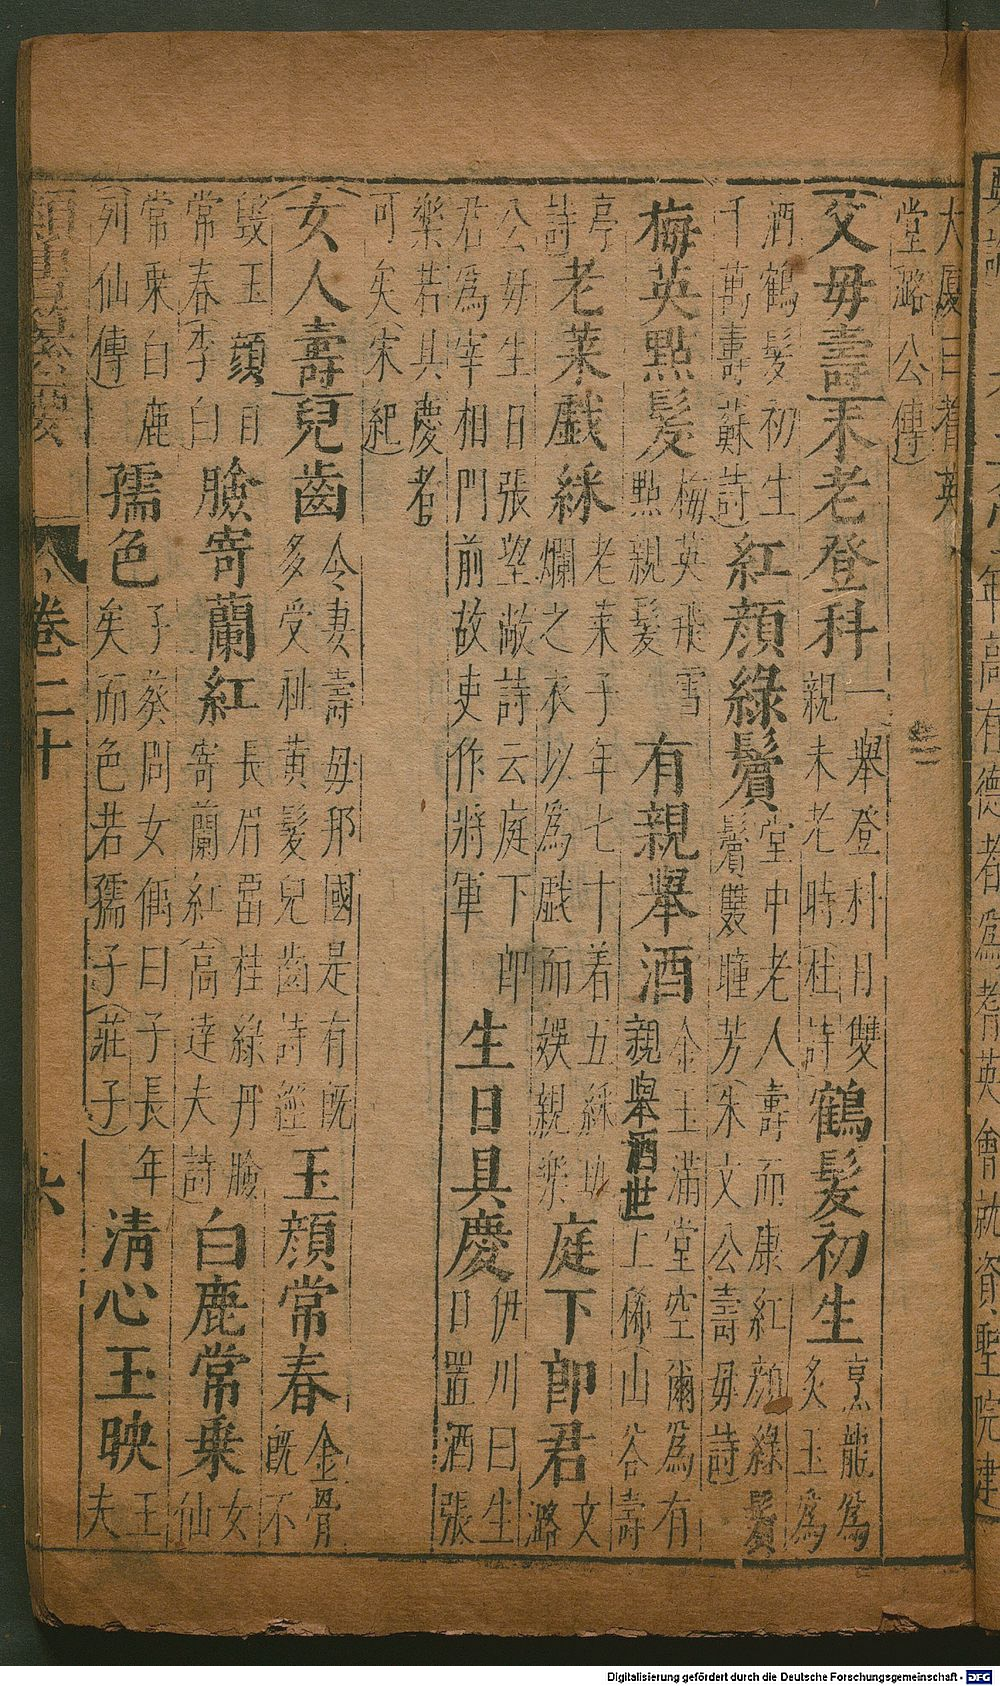 年高有德者為耆英會就資聖院建
大廈曰耆英
堂潞公傳)
(父母壽)未老登科
一舉登科月雙
親未老時杜詩
鶴髮初生
烹龍為
炙玉為
酒鶴髮初生
千萬壽蘇詩)
紅顏綠鬢
堂中老人壽而康紅顏綠鬢
鬢雙瞳芳(朱文公壽母詩)
梅英點髮
梅英飛雪
點親髮
有親舉酒
金玉滿堂空爾為有
親舉酒世上稀(山谷壽
亭
詩)
老萊戲綵
老萊子年七十着五綵
爛之衣以為戲而娛親樂
庭下郎君
文
潞
公母生日張望敞詩云庭下郎
君為宰相門前故吏作將軍
生日具慶
伊川曰生
日置酒張
樂若具慶者
可矣(宋紀)
(女人壽)兒齒
令妻壽母邦國是有既
多受祉黃髮兒齒詩經)
玉顏常春
金骨
既不
毀玉顏自
常春(李白
臉寄蘭紅
長眉留桂綠丹臉
寄蘭紅(高達夫詩)
白鹿常乗
女
仙
常乗白鹿
(列仙傳)
孺色
子葵問女偊曰子長年
矣而色若孺子(莊子)
清心玉映
王
夫
類書纂要 卷二十 六
Digitalisierung gefördert durch die Deutsche Forschungsgemeinschaft - DFG